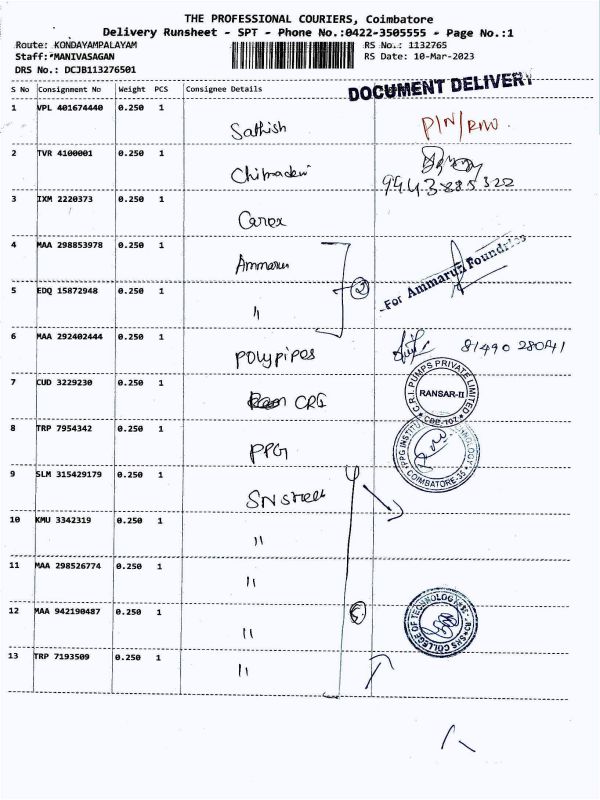 THE PROFESSIONAL COURIERS, Coimbatore
Delivery Runsheet - SPT - Phone No.:0422-3505555 - Page No.:1
Route: KONDAYAMPALAYAM RS No.: 1132765
Staff:*MANIVASAGAN RS Date: 10-Mar-2023
DRS No.: DCJB113276501
DOCUMENT DELIVERY
S No Consignment No Weight PCS Consignee Details
1 VPL 401674440 0.250 1
Sathish PIN/RNO.
2 TVR 4100001 0.250 1
9943885322
3 IXM 2220373 0.250 1
Carex
4 MAA 298853978 0.250 1
Ammarun
For Ammarun Foundries
5 EDQ 15872948 0.250 1
〃 2
6 MAA 292402444 0.250 1
Polypipes 81490 28041
7 CUD 3229230 0.250 1
CRI
C.R.I. PUMPS PRIVATE LIMITED
RANSAR-II
CBE-107
8 TRP 7954342 0.250 1
PPG
COIMBATORE-35
9 SLM 315429179 0.250 1
SNS
10 KMU 3342319 0.250 1
〃
11 MAA 298526774 0.250 1
〃
12 MAA 942190487 0.250 1
〃
SNS COLLEGE OF TECHNOLOGY
13 TRP 7193509 0.250 1
〃